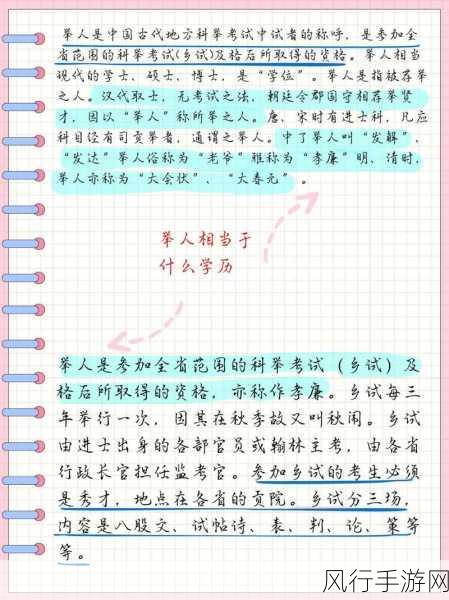 举人是中国古代地方科举考试中试者的称呼，是参加全
省范围的科举考试(乡试)及格后所取得的资格。举人相当
现代的学士、硕士，博士，是“学位”。举人是指被荐举
之人。汉代取士，无考试之法，朝廷令郡国守相荐举贤
才，因以“举人”称所举之人。唐、宋时有进士科，凡应
科目经有司贡举者，通谓之举人。中了举人叫“发解”、
“发达”举人俗称为“老爷”雅称为“孝廉”明、清时，
举人亦称为“大会状”、“大春元”。
举人相当于
什么学历
举人是参加全省范围的科举考试（乡试）及
格后所取得的资格，亦称作孝廉。乡试每三
年举行一次，因其在秋季故又叫秋闱。乡试
由进士出身的各部官员或翰林主考，由各省
行政长官担任监考官。参加乡试的考生必须
是秀才，地点在各省的贡院。乡试分三场，
内容是八股文、试帖诗、表、判、论、策等
等。
风行手游网